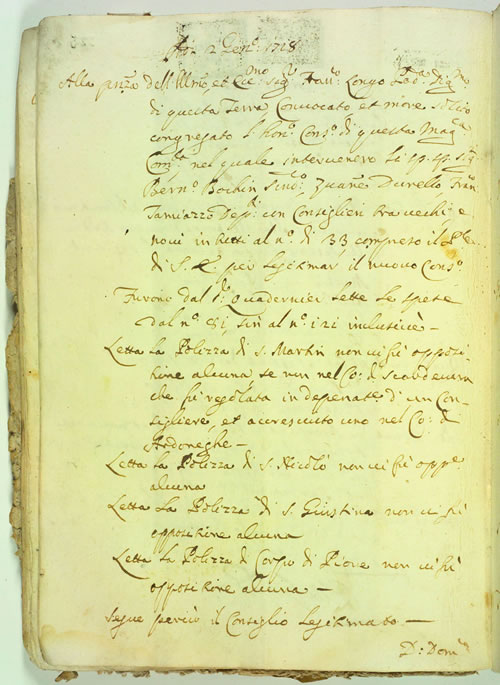 Adì 2 Genº: 1718
Alla pnza dell Illmo, et Eccmo Sigr Franº: Longo Podà Digmo
di questa Terra Convocato et more solito
congregato l'honº: Consº: di questa Magca
Comtà nel quale intervenero li sp. sp. Sigri
Bernº: Bochin Sinco: Zuane Durello Fran
Tamiazzo Depti con Consiglieri tra vecchi e
novi in tutti al nº: di 33 compreso il
di S. E. per legitimar il nuovo Consº
Furono dal Quadernier lette le spese
dal nº: 81, sin al nº: 121 inclusivè —
Letta la Polizza di S. Martin non vi fù opposi,
tione alcuna se non nel Co: di
che fù regolata in depenate di un Con,
sigliere, et accresciuto uno nel Co: di
Ardoneghe —
Letta la Polizza di S. Nicolò non vi fù oppne
alcuna
Letta la Polizza di S. Giustina non vi fù
oppositione alcuna
Letta la Polizza di Corpo di Piove non vi fù
oppositione alcuna —
segue perciò il Consiglio legitimato —
D: Domco